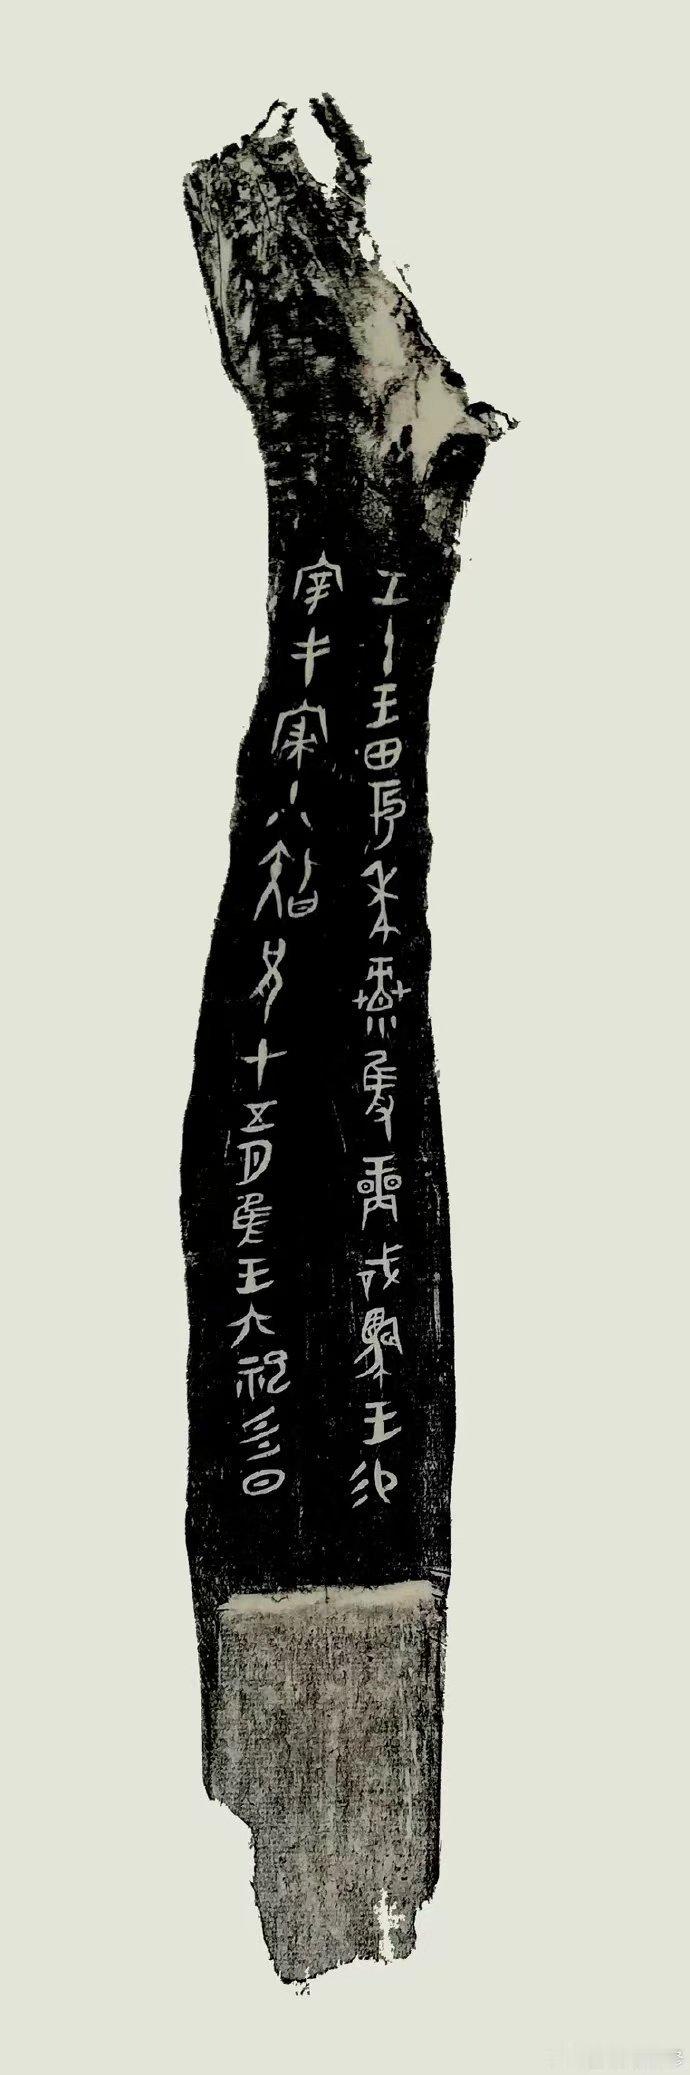 壬午王田于麥彔隻商戠兕王易
宰丰寑小𥎿兄才五月隹王六祀肜日